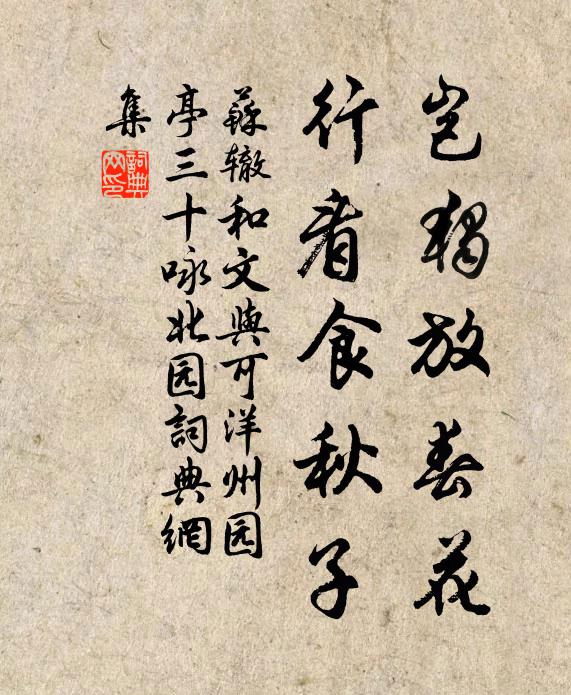 岂独放春花
行看食秋子
蘇辙和文與可洋州园
亭三十咏北园詞典網
集
詞典
网印